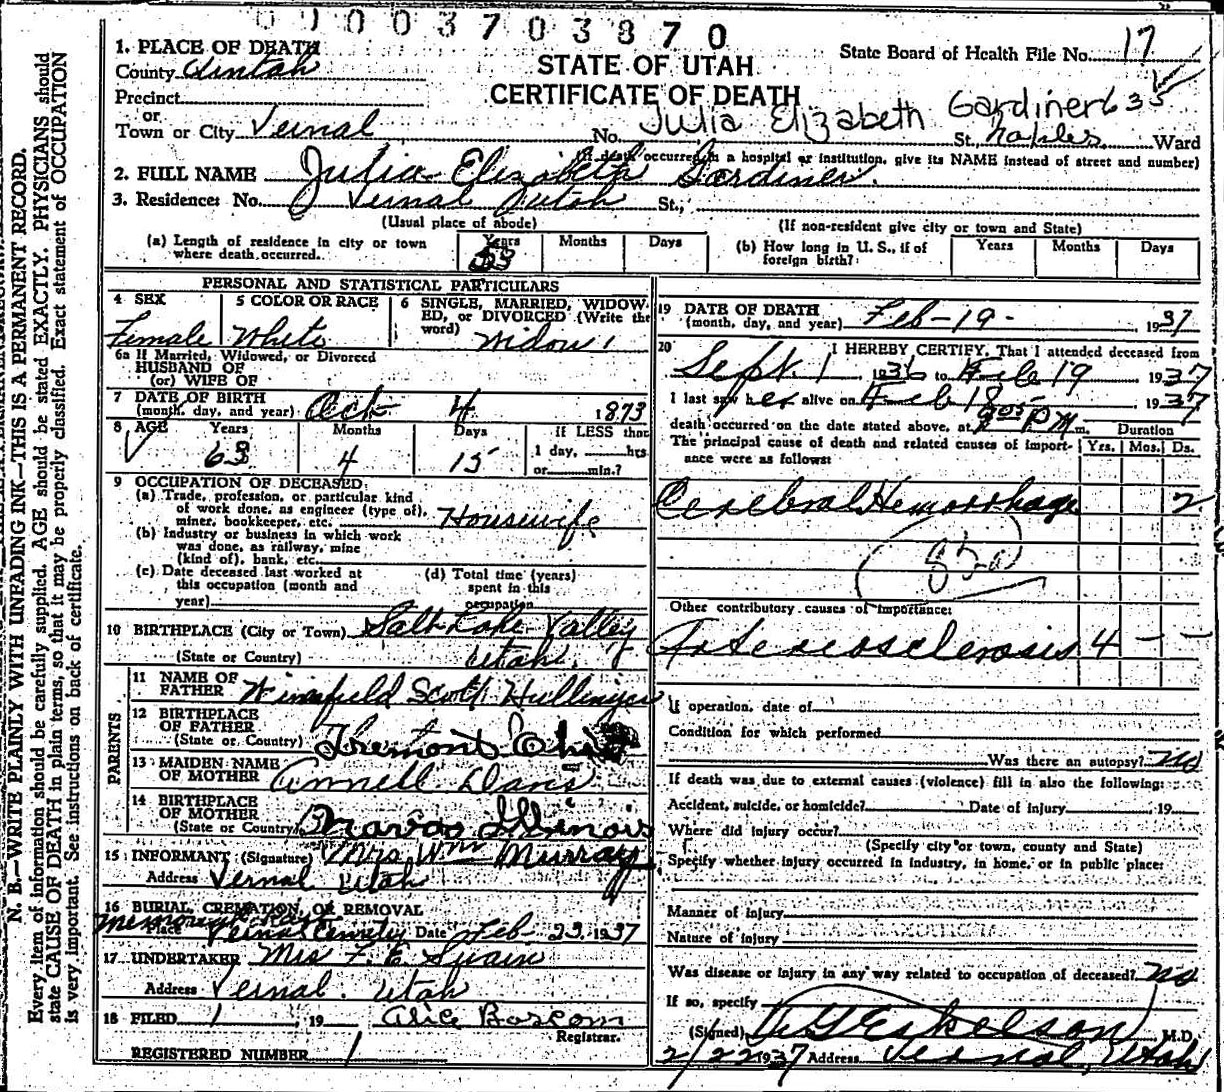 0 0 0 3 7 0 3 8 7 0
1. PLACE OF DEATH
County Uintah
Precinct
or
Town or City Vernal
STATE OF UTAH
CERTIFICATE OF DEATH
State Board of Health File No. 17
635
Julia Elizabeth Gardiner
No. St., Naples Ward
(If death occurred in a hospital or institution, give its NAME instead of street and number)
2. FULL NAME Julia Elizabeth Gardiner.
3. Residence: No. Vernal Utah St.,
(Usual place of abode) (If non-resident give city or town and State)
(a) Length of residence in city or town where death occurred. Years 53 Months Days
(b) How long in U. S., if of foreign birth? Years Months Days
PERSONAL AND STATISTICAL PARTICULARS
4 SEX Female
5 COLOR OR RACE White
6 SINGLE, MARRIED, WIDOWED, or DIVORCED (Write the word) Widow
6a If Married, Widowed, or Divorced
HUSBAND OF
(or) WIFE OF
7 DATE OF BIRTH
(month, day, and year) Oct 4 1873
8 AGE Years 63 Months 4 Days 15
If LESS than
1 day, hrs
or min.?
9 OCCUPATION OF DECEASED:
(a) Trade, profession, or particular kind
of work done, as engineer (type of),
miner, bookkeeper, etc. Housewife
(b) Industry or business in which work
was done, as railway, mine
(kind of), bank, etc.
(c) Date deceased last worked at
this occupation (month and
year)
(d) Total time (years)
spent in this
occupation
10 BIRTHPLACE (City or Town) Salt Lake Valley
(State or Country) Utah
PARENTS
11 NAME OF
FATHER Winsfield Scott
12 BIRTHPLACE
OF FATHER
(State or Country) Tremont Ohio
13 MAIDEN NAME
OF MOTHER Annell Davis
14 BIRTHPLACE
OF MOTHER
(State or Country) Navoo Illinois
15 INFORMANT (Signature) Mrs Wm Murray
Address Vernal Utah
16 BURIAL, CREMATION, OR REMOVAL
Memorial Park
Place Vernal Cemetery Date Feb 23, 1937
17 UNDERTAKER Mrs F. E. Swain
Address Vernal. Utah
18 FILED 1, 19 Alice Bascom
Registrar.
REGISTERED NUMBER 1
19 DATE OF DEATH
(month, day, and year) Feb-19- 1937
20 I HEREBY CERTIFY, That I attended deceased from
Sept. 1 1936 to Feb 19 1937
I last saw her alive on Feb 18 1937
death occurred on the date stated above, at 9:05 P.M. m. Duration
The principal cause of death and related causes of importance were as follows: Yrs. Mos. Ds.
Cerebral Hemorrhage 2
82a
Other contributory causes of importance:
Arteriosclerosis 4 - -
If operation, date of
Condition for which performed
Was there an autopsy? No
If death was due to external causes (violence) fill in also the following:
Accident, suicide, or homicide? Date of injury 19
Where did injury occur?
(Specify city or town, county and State)
Specify whether injury occurred in industry, in home, or in public place:
Manner of injury
Nature of injury
Was disease or injury in any way related to occupation of deceased? No
If so, specify
(Signed) Eskelson M.D.
2/22 1937 Address Vernal, Utah
N. B.—WRITE PLAINLY WITH UNFADING INK—THIS IS A PERMANENT RECORD.
Every item of information should be carefully supplied. AGE should be stated EXACTLY. PHYSICIANS should
state CAUSE OF DEATH in plain terms, so that it may be properly classified. Exact statement of OCCUPATION
is very important. See instructions on back of certificate.